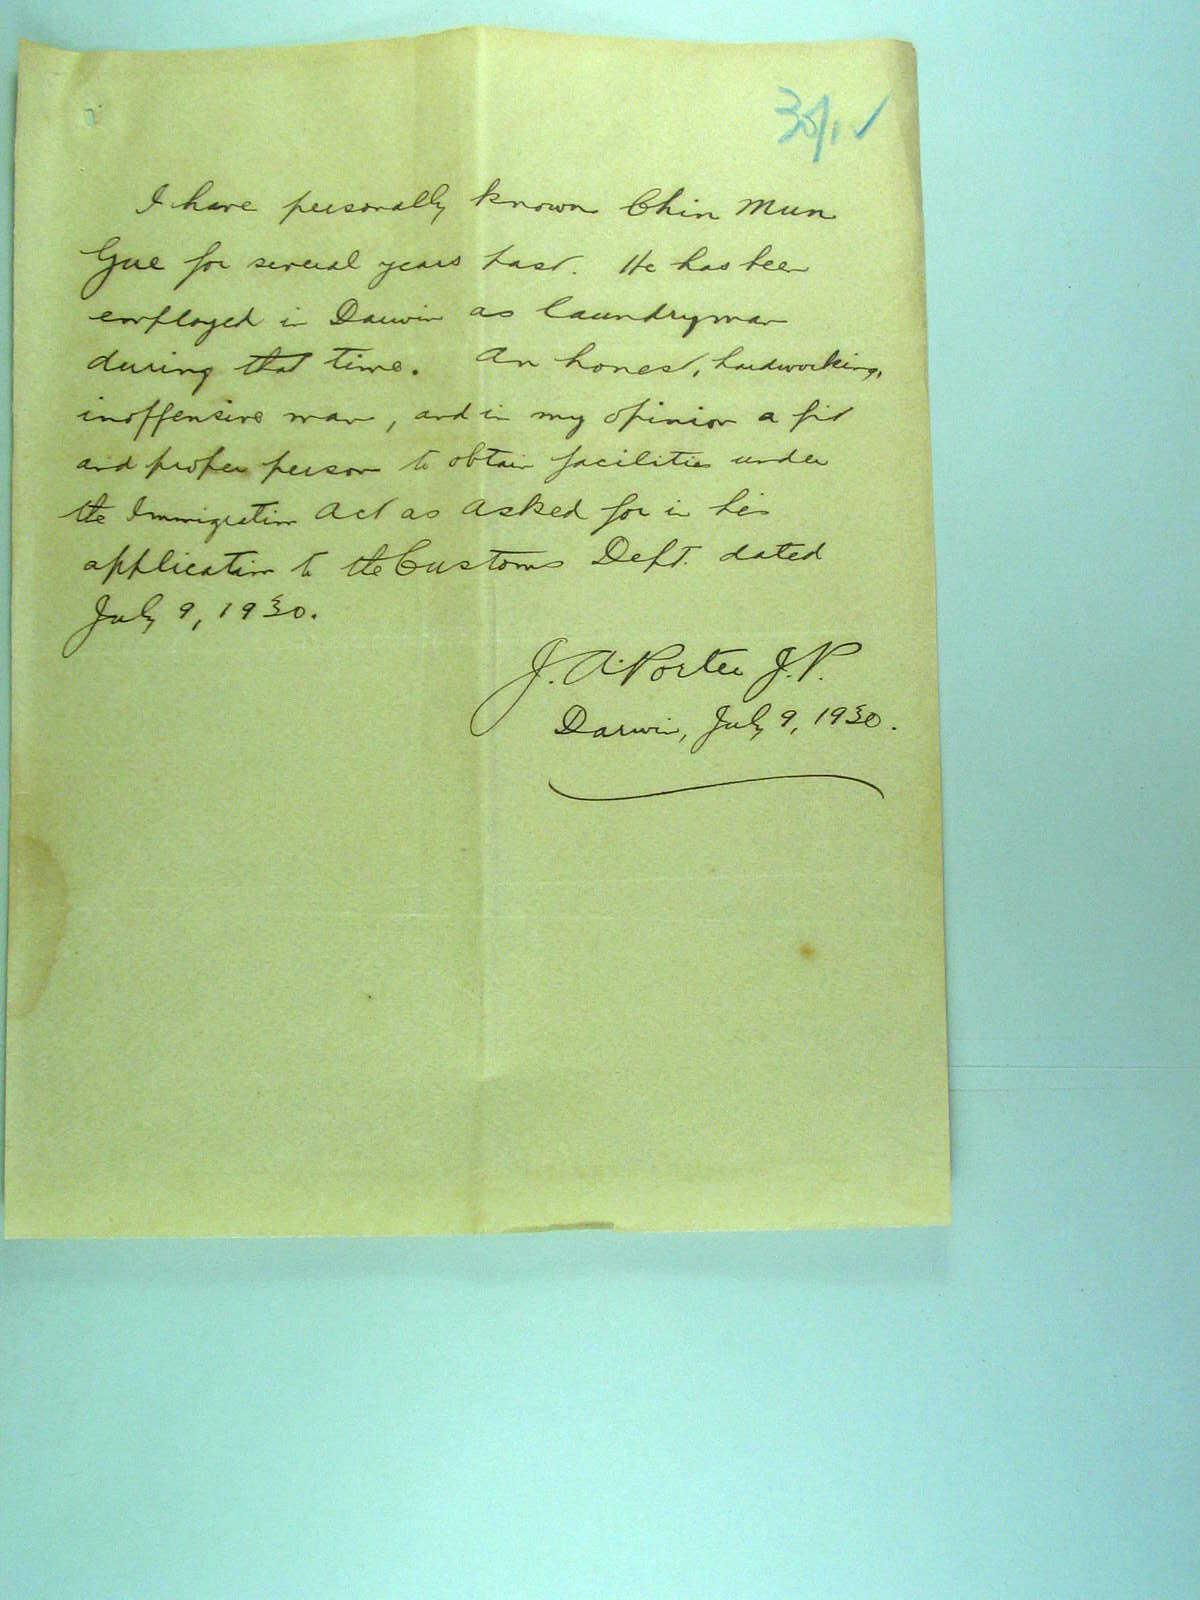 I have personally known Chin Mun
Gue for several years past. He has been
employed in Darwin as laundryman
during that time. An honest, hardworking,
inoffensive man, and in my opinion a fit
and proper person to obtain facilities under
the Immigration Act as asked for in his
application to the Customs Dept. dated
July 9, 1930.
J. A. Porter J.P.
Darwin, July 9, 1930.